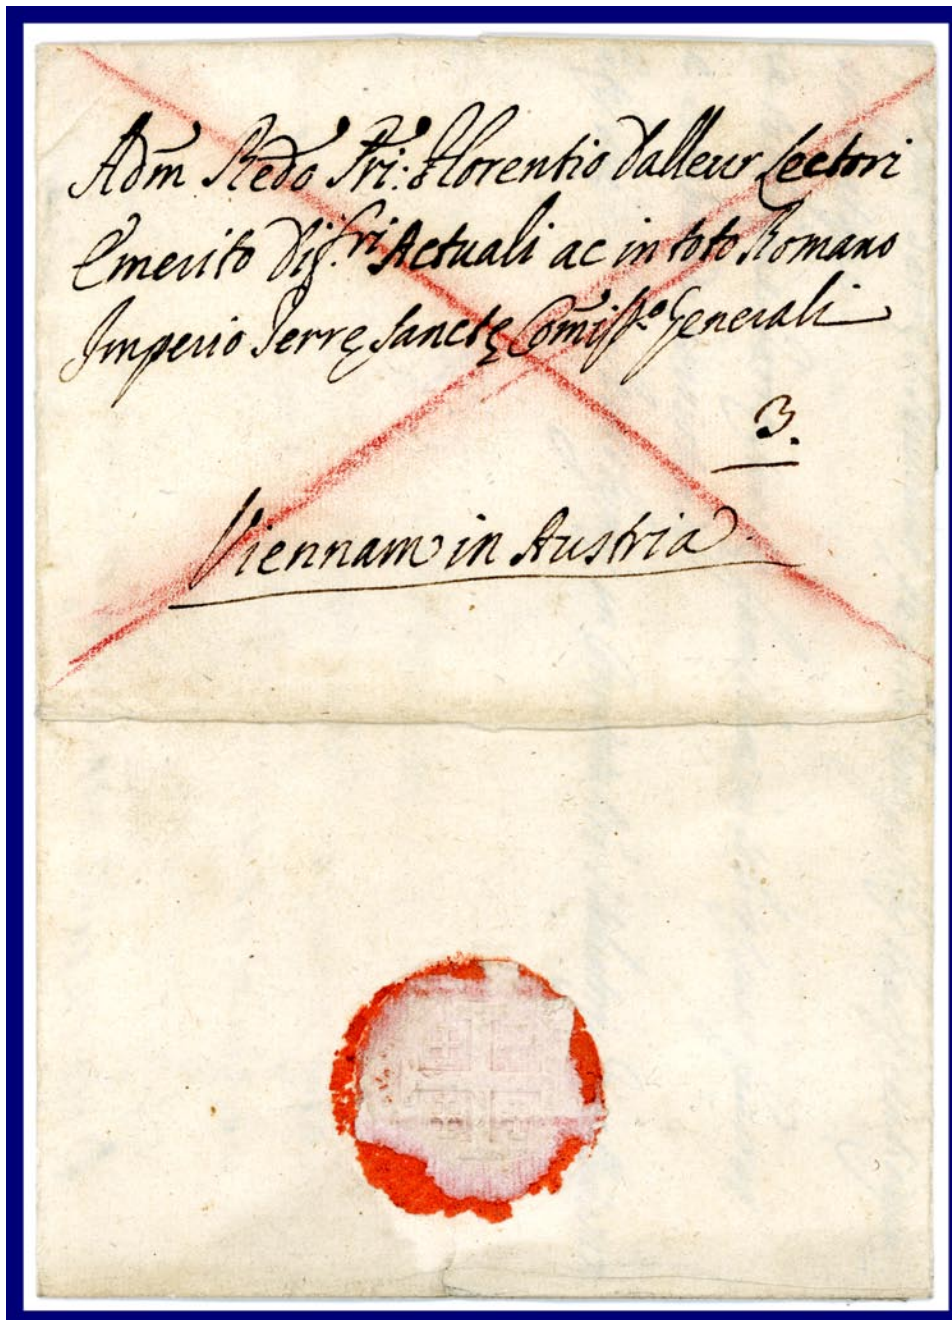 Adm̃ Redo Pri: Florentio Dalleur Lectori
Emerito Diff.ri Actuali ac in toto Romano
Imperio Terrę Sanctę Com̃iss.o Generali
3.
Viennam in Austria